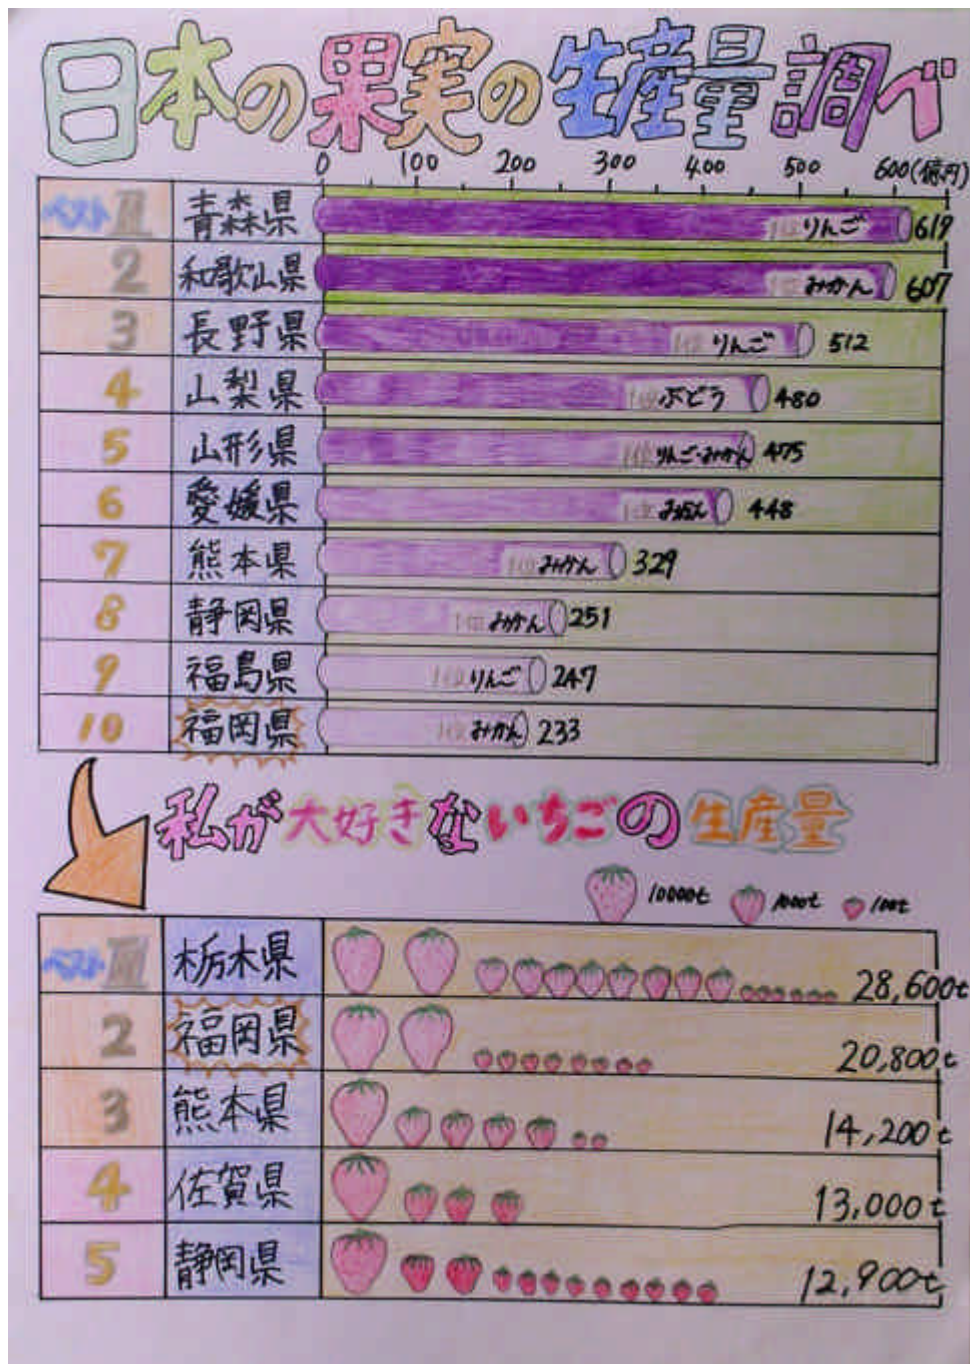 日本の果実の生産量調べ
0 100 200 300 400 500 600(億円)
ベスト 青森県 1位りんご 619
2 和歌山県 1位みかん 607
3 長野県 1位りんご 512
4 山梨県 1位ぶどう 480
5 山形県 1位りんご・みかん 475
6 愛媛県 1位みかん 448
7 熊本県 1位みかん 329
8 静岡県 1位みかん 251
9 福島県 1位りんご 247
10 福岡県 1位みかん 233
私が大好きないちごの生産量
10000t 1000t 100t
ベスト 栃木県 28,600t
2 福岡県 20,800t
3 熊本県 14,200t
4 佐賀県 13,000t
5 静岡県 12,900t